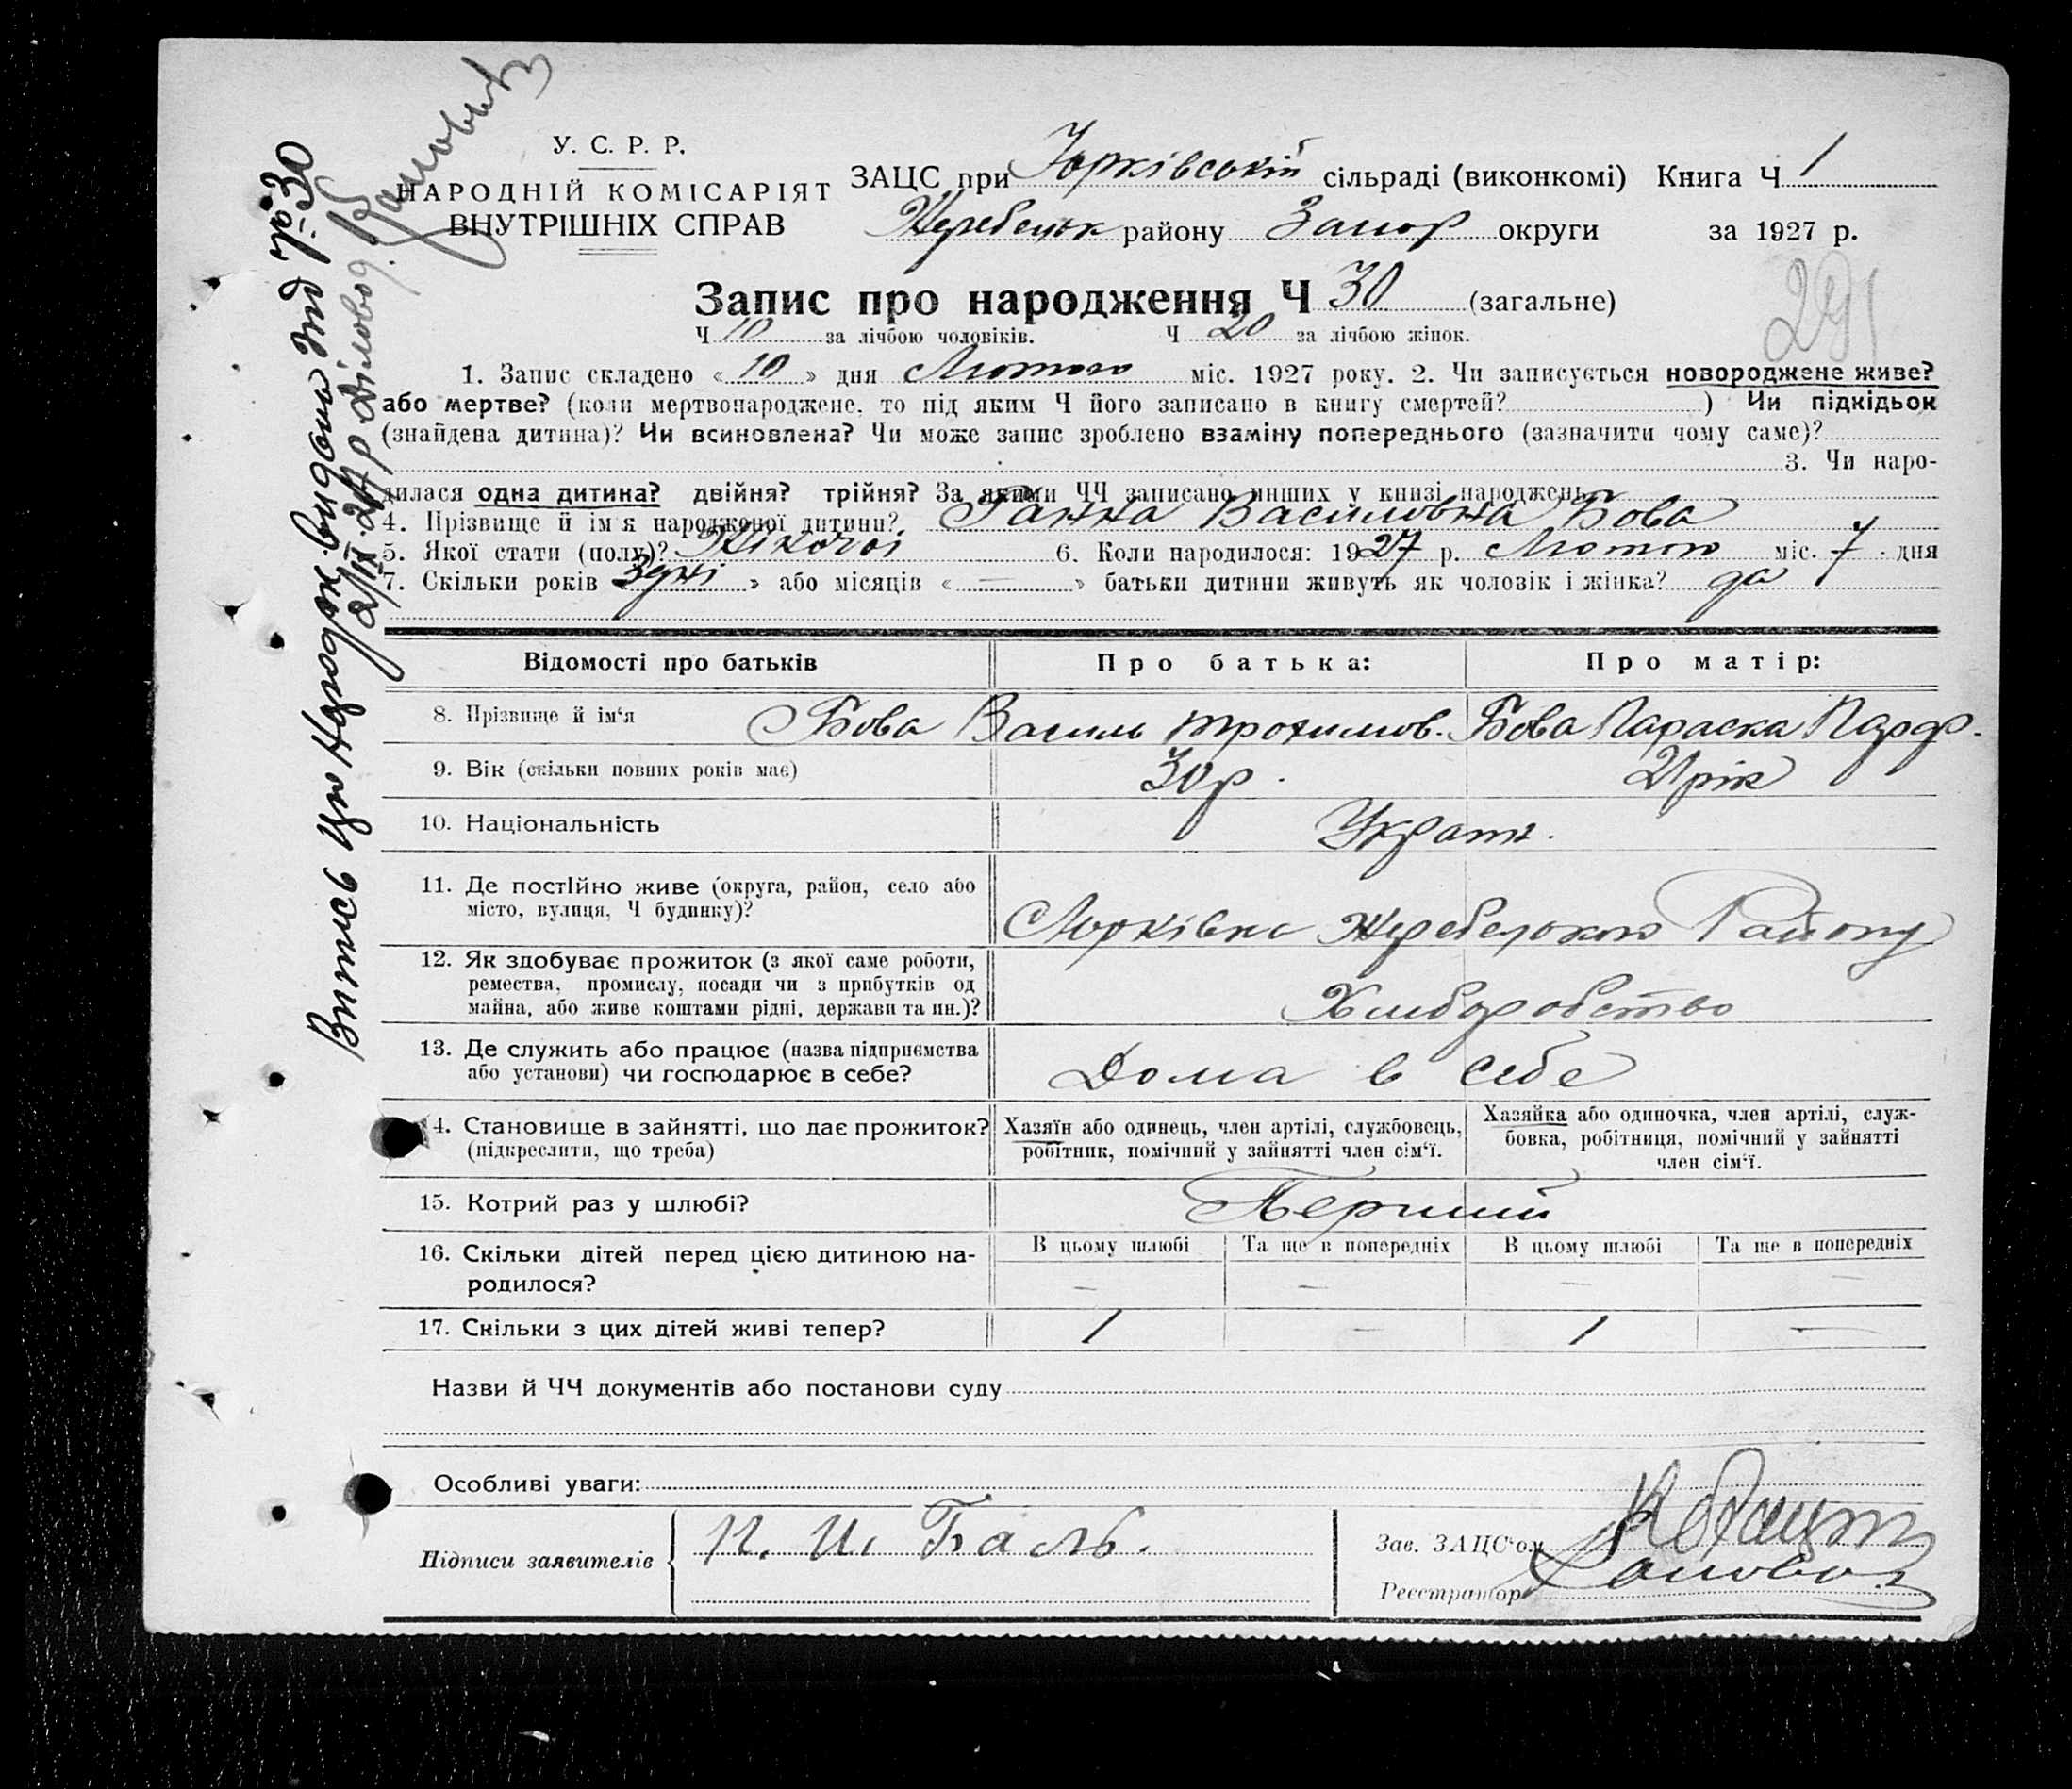 У. С. Р. Р.
НАРОДНІЙ КОМІСАРІЯТ
ВНУТРІШНІХ СПРАВ
ЗАЦС при Юрківській сільраді (виконкомі) Книга Ч 1
Жеребецьк району Запор округи за 1927 р.
Запис про народження Ч 30 (загальне)
291
Ч 10 за лічбою чоловіків. Ч 20 за лічбою жінок.
1. Запис складено « 10 » дня Лютого міс. 1927 року. 2. Чи записується новороджене живе?
або мертве? (коли мертвонароджене, то під яким Ч його записано в книгу смертей? ) Чи підкідьок
(знайдена дитина)? Чи всиновлена? Чи може запис зроблено взаміну попереднього (зазначити чому саме)?
3. Чи наро-
дилася одна дитина? двійня? трійня? За якими ЧЧ записано инших у книзі народжень
4. Прізвище й ім'я народженої дитини? Ганна Василовна Бова
5. Якої стати (полу)? Жіночої 6. Коли народилося: 1927 р. Лютого міс. 7 дня
7. Скільки років « » або місяців « — » батьки дитини живуть як чоловік і жінка? да
Відомості про батьків Про батька: Про матір:
8. Прізвище й ім'я Бова Василь Трохимов. Бова Параска Парф.
9. Вік (скільки повних років має) 30 р. 21 рік
10. Національність Україн.
11. Де постійно живе (округа, район, село або
місто, вулиця, Ч будинку)?
Юрківка Жеребецького Району
12. Як здобуває прожиток (з якої саме роботи,
ремества, промислу, посади чи з прибутків од
майна, або живе коштами рідні, держави та ин.)?
Хліборобство
13. Де служить або працює (назва підприємства
або установи) чи господарює в себе?
Дома в себе
14. Становище в зайнятті, що дає прожиток?
(підкреслити, що треба)
Хазяїн або одинець, член артілі, службовець,
робітник, помічний у зайнятті член сім'ї.
Хазяйка або одиночка, член артілі, служ-
бовка, робітниця, помічний у зайнятті
член сім'ї.
15. Котрий раз у шлюбі? Перший
16. Скільки дітей перед цією дитиною на-
родилося?
В цьому шлюбі Та ще в попередніх В цьому шлюбі Та ще в попередніх
— — — —
17. Скільки з цих дітей живі тепер? 1 — 1 —
Назви й ЧЧ документів або постанови суду
Особливі уваги:
Підписи заявителів П. И. Баль.
Зав. ЗАЦС'ом
Реєстратор
Випись про народж. видано под № 30
Діловод.